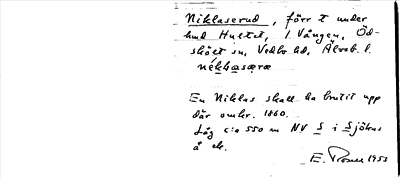 Niklaserud, förr t under
hmd Hultet, 1 Vången, Öd-
skölt sn, Vedbo hd, Älvsb. l.
nékkasæræ
En Niklas skall ha brutit upp
där omkr. 1860.
Låg c:a 550 m NV S i Sjökas
å ek.
E. 1953